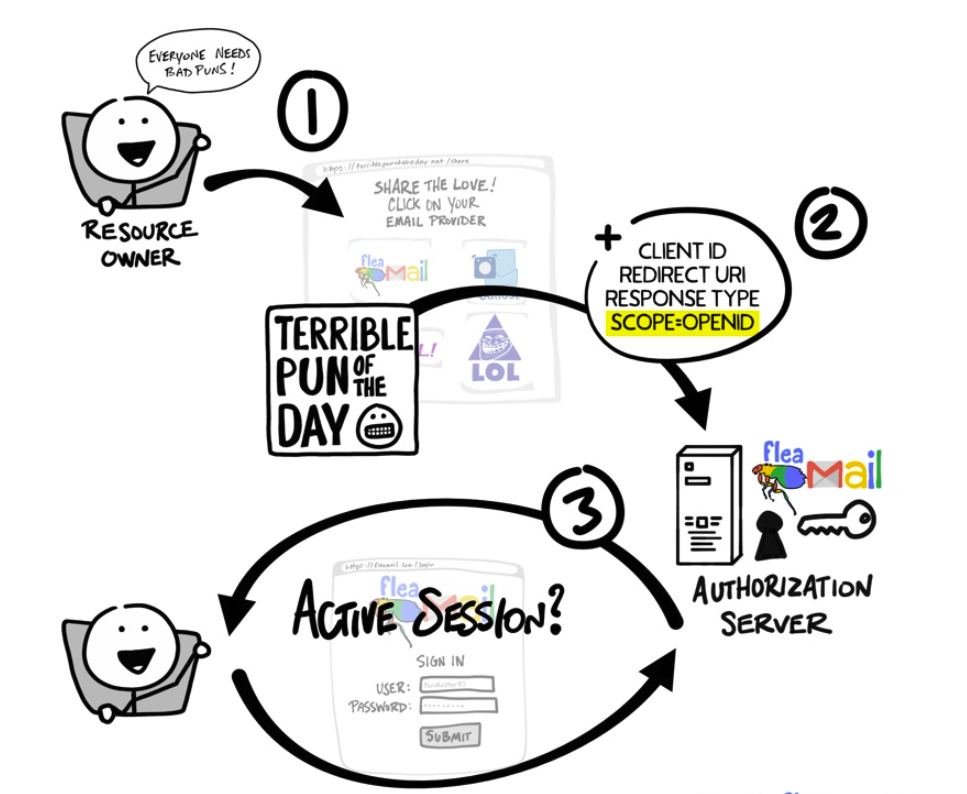 EVERYONE NEEDS
BAD PUNS!
1
RESOURCE
OWNER
https://terriblepunoftheday.net/share
SHARE THE LOVE!
CLICK ON YOUR
EMAIL PROVIDER
flea
Mail
L!
LOL
TERRIBLE
PUN OF THE
DAY
2
+
CLIENT ID
REDIRECT URI
RESPONSE TYPE
SCOPE=OPENID
flea
Mail
AUTHORIZATION
SERVER
3
https://fleamail.com/login
flea
Mail
ACTIVE SESSION?
SIGN IN
USER:
PASSWORD:
SUBMIT